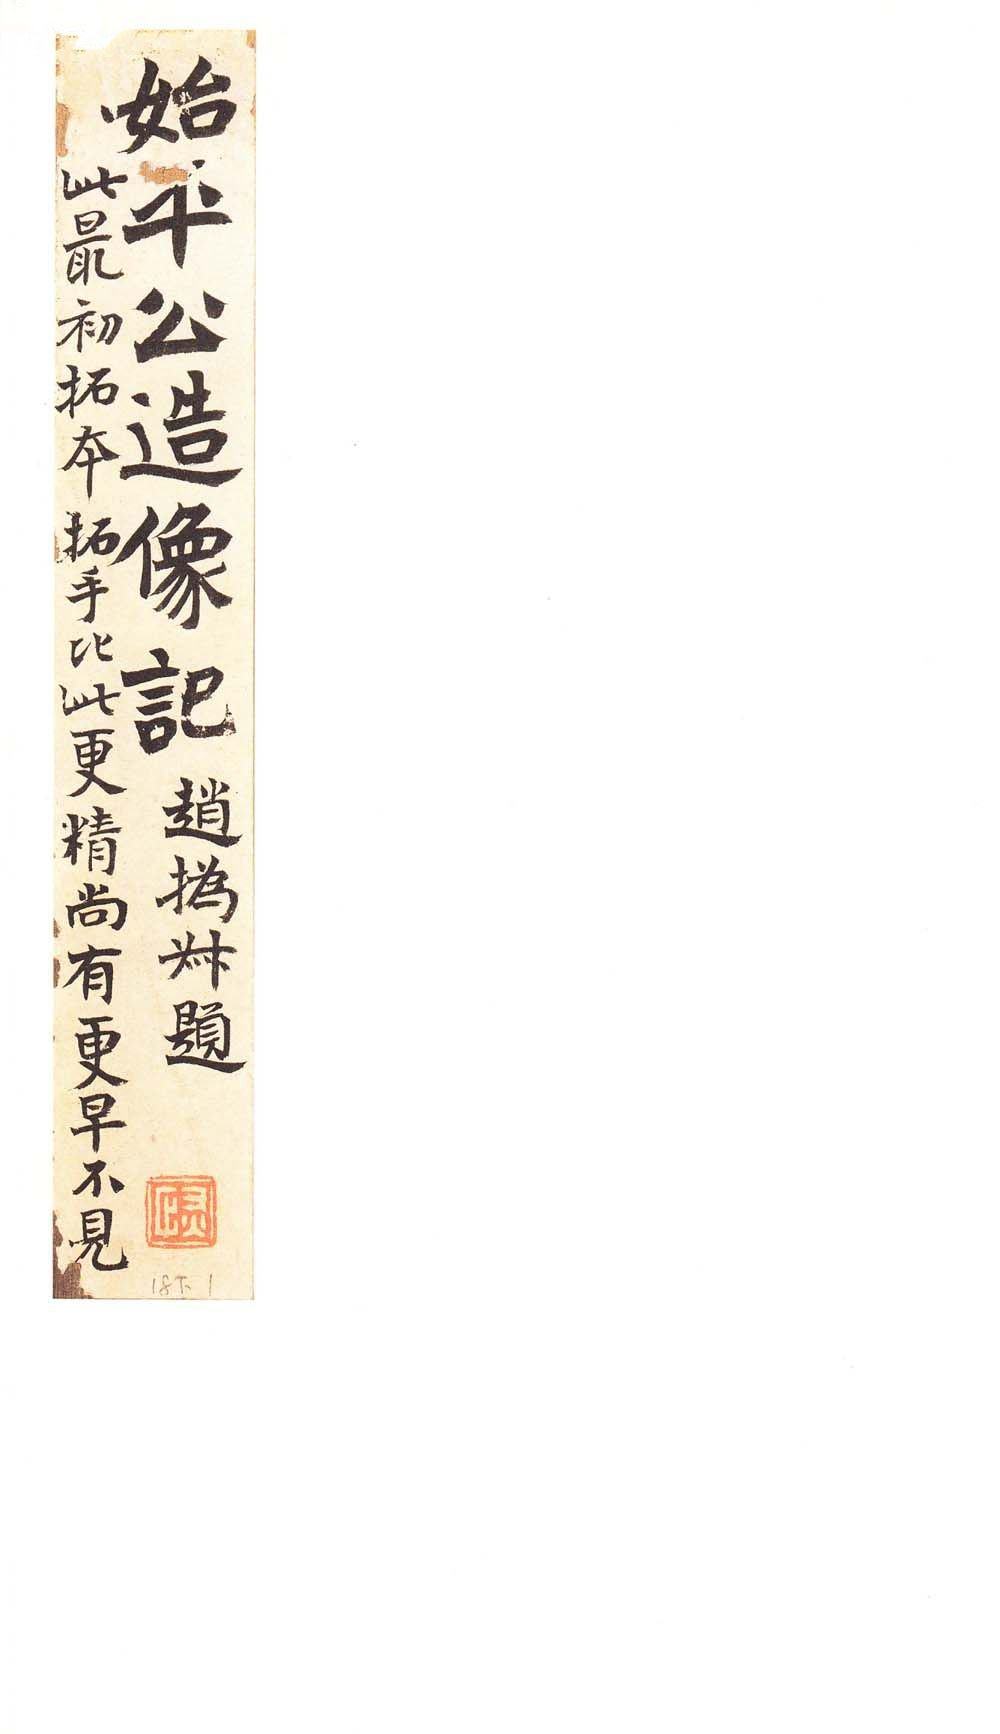 始平公造像記
趙撝叔題
此最初拓本拓手比此更精尚有更早不見
18下 1